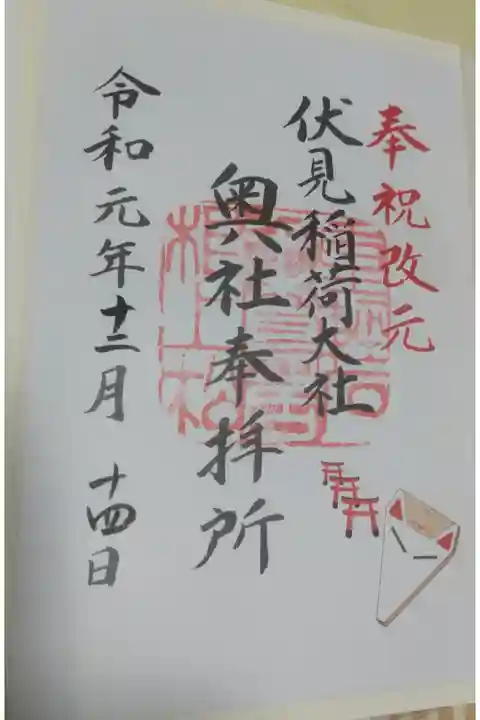 奉祝改元
伏見稲荷大社
奥社奉拝所
令和元年十二月 十四日